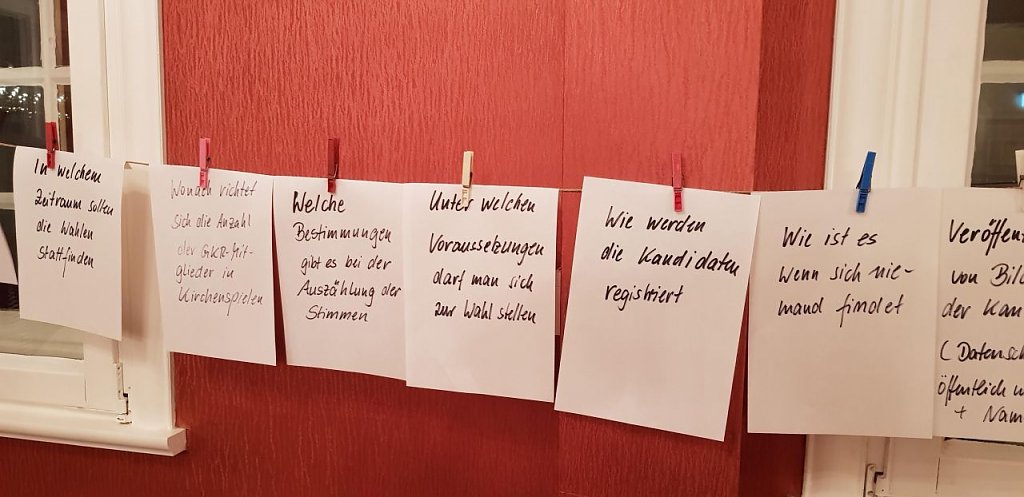 In welchem
Zeitraum sollen
die Wahlen
stattfinden
Wonach richtet
sich die Anzahl
der GKR-Mit-
glieder in
Kirchenspielen
Welche
Bestimmungen
gibt es bei der
Auszählung der
Stimmen
Unter welchen
Voraussetzungen
darf man sich
zur Wahl stellen
Wie werden
die Kandidaten
registriert
Wie ist es
wenn sich nie-
mand findet
Veröffent
von Bil
der Kan
(Datensch
öffentlich
+ Nam